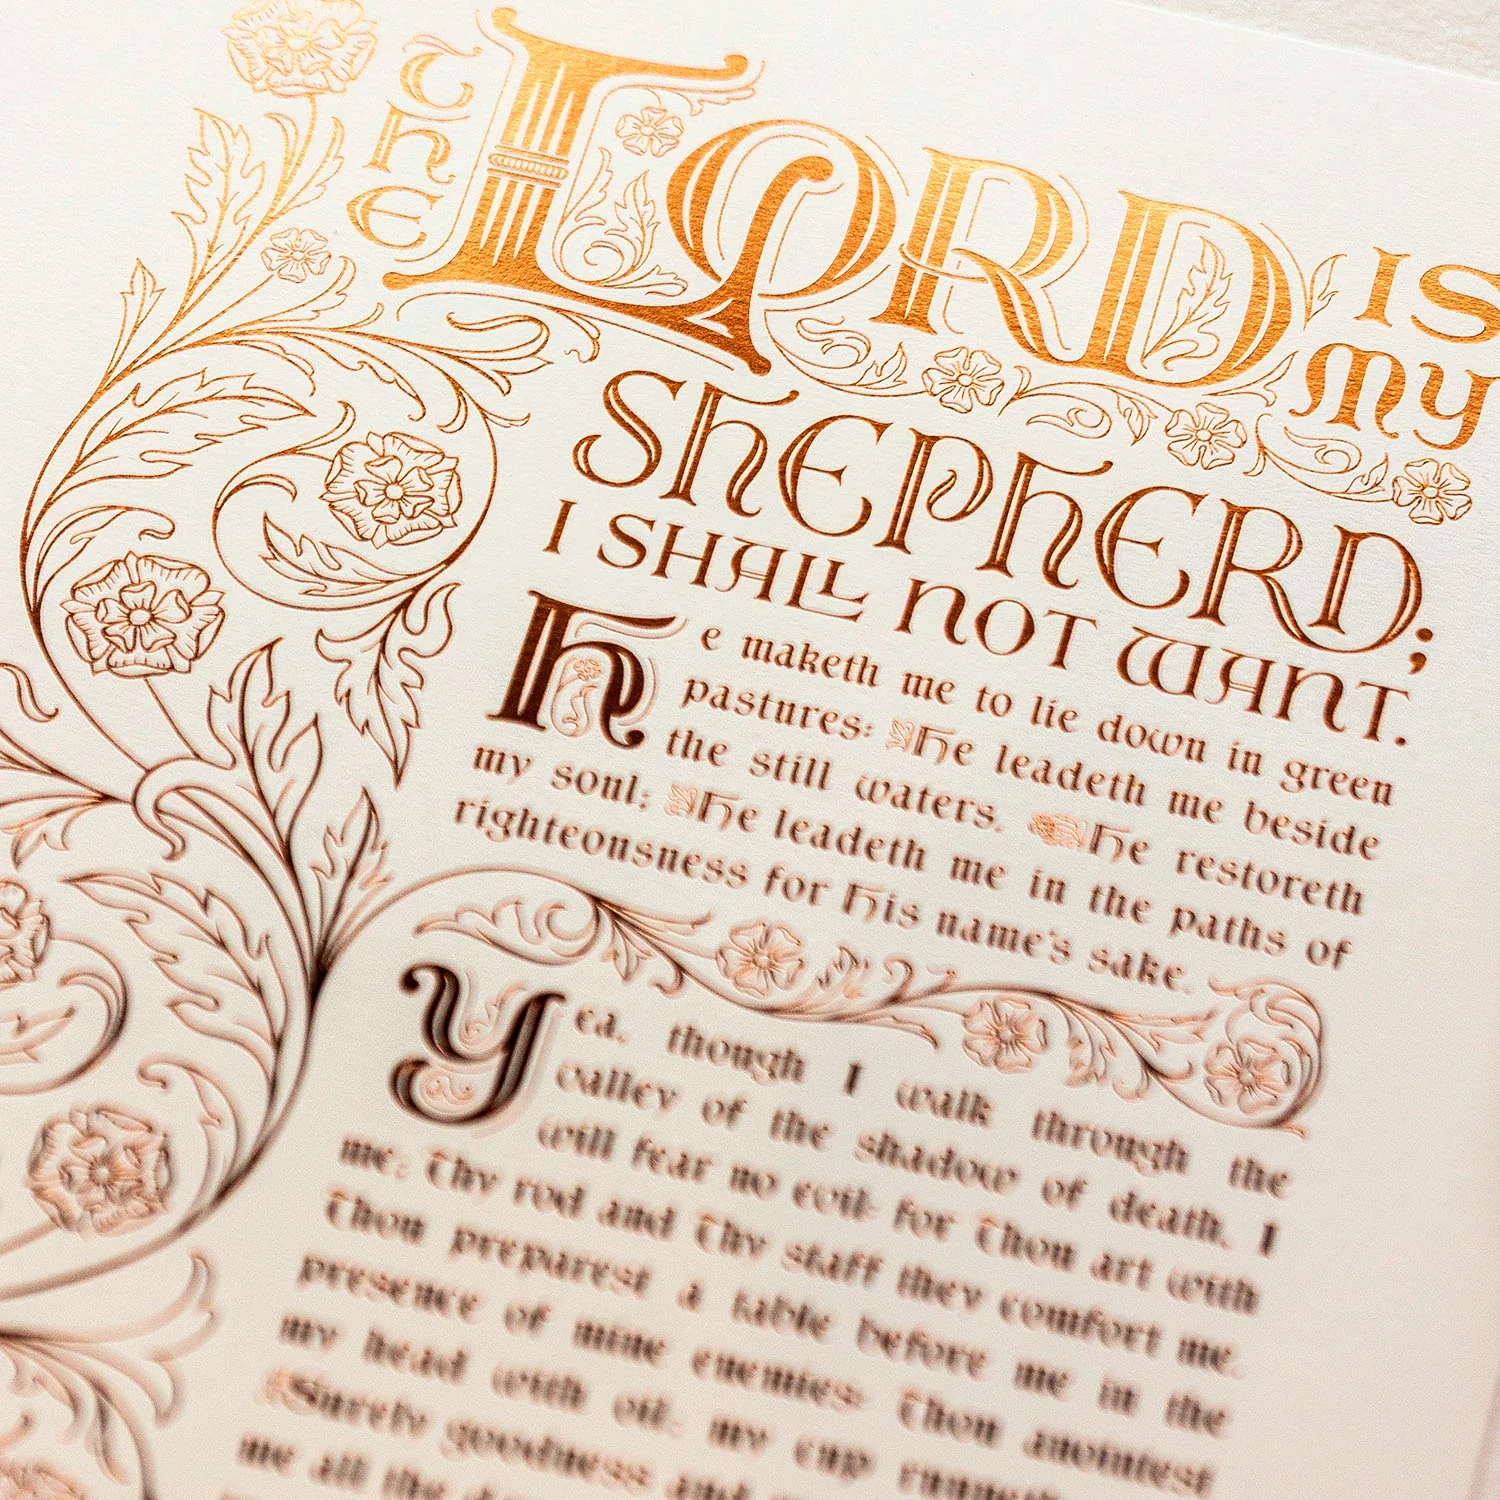 THE LORD IS
MY
SHEPHERD;
I SHALL NOT WANT.
He maketh me to lie down in green
pastures: He leadeth me beside
the still waters. He restoreth
my soul: He leadeth me in the paths of
righteousness for His name's sake.
Yea, though I walk through the
valley of the shadow of death, I
will fear no evil: for Thou art with
me; Thy rod and Thy staff they comfort me.
Thou preparest a table before me in the
presence of mine enemies: Thou anointest
my head with oil; my cup runneth
Surely goodness and
me all the